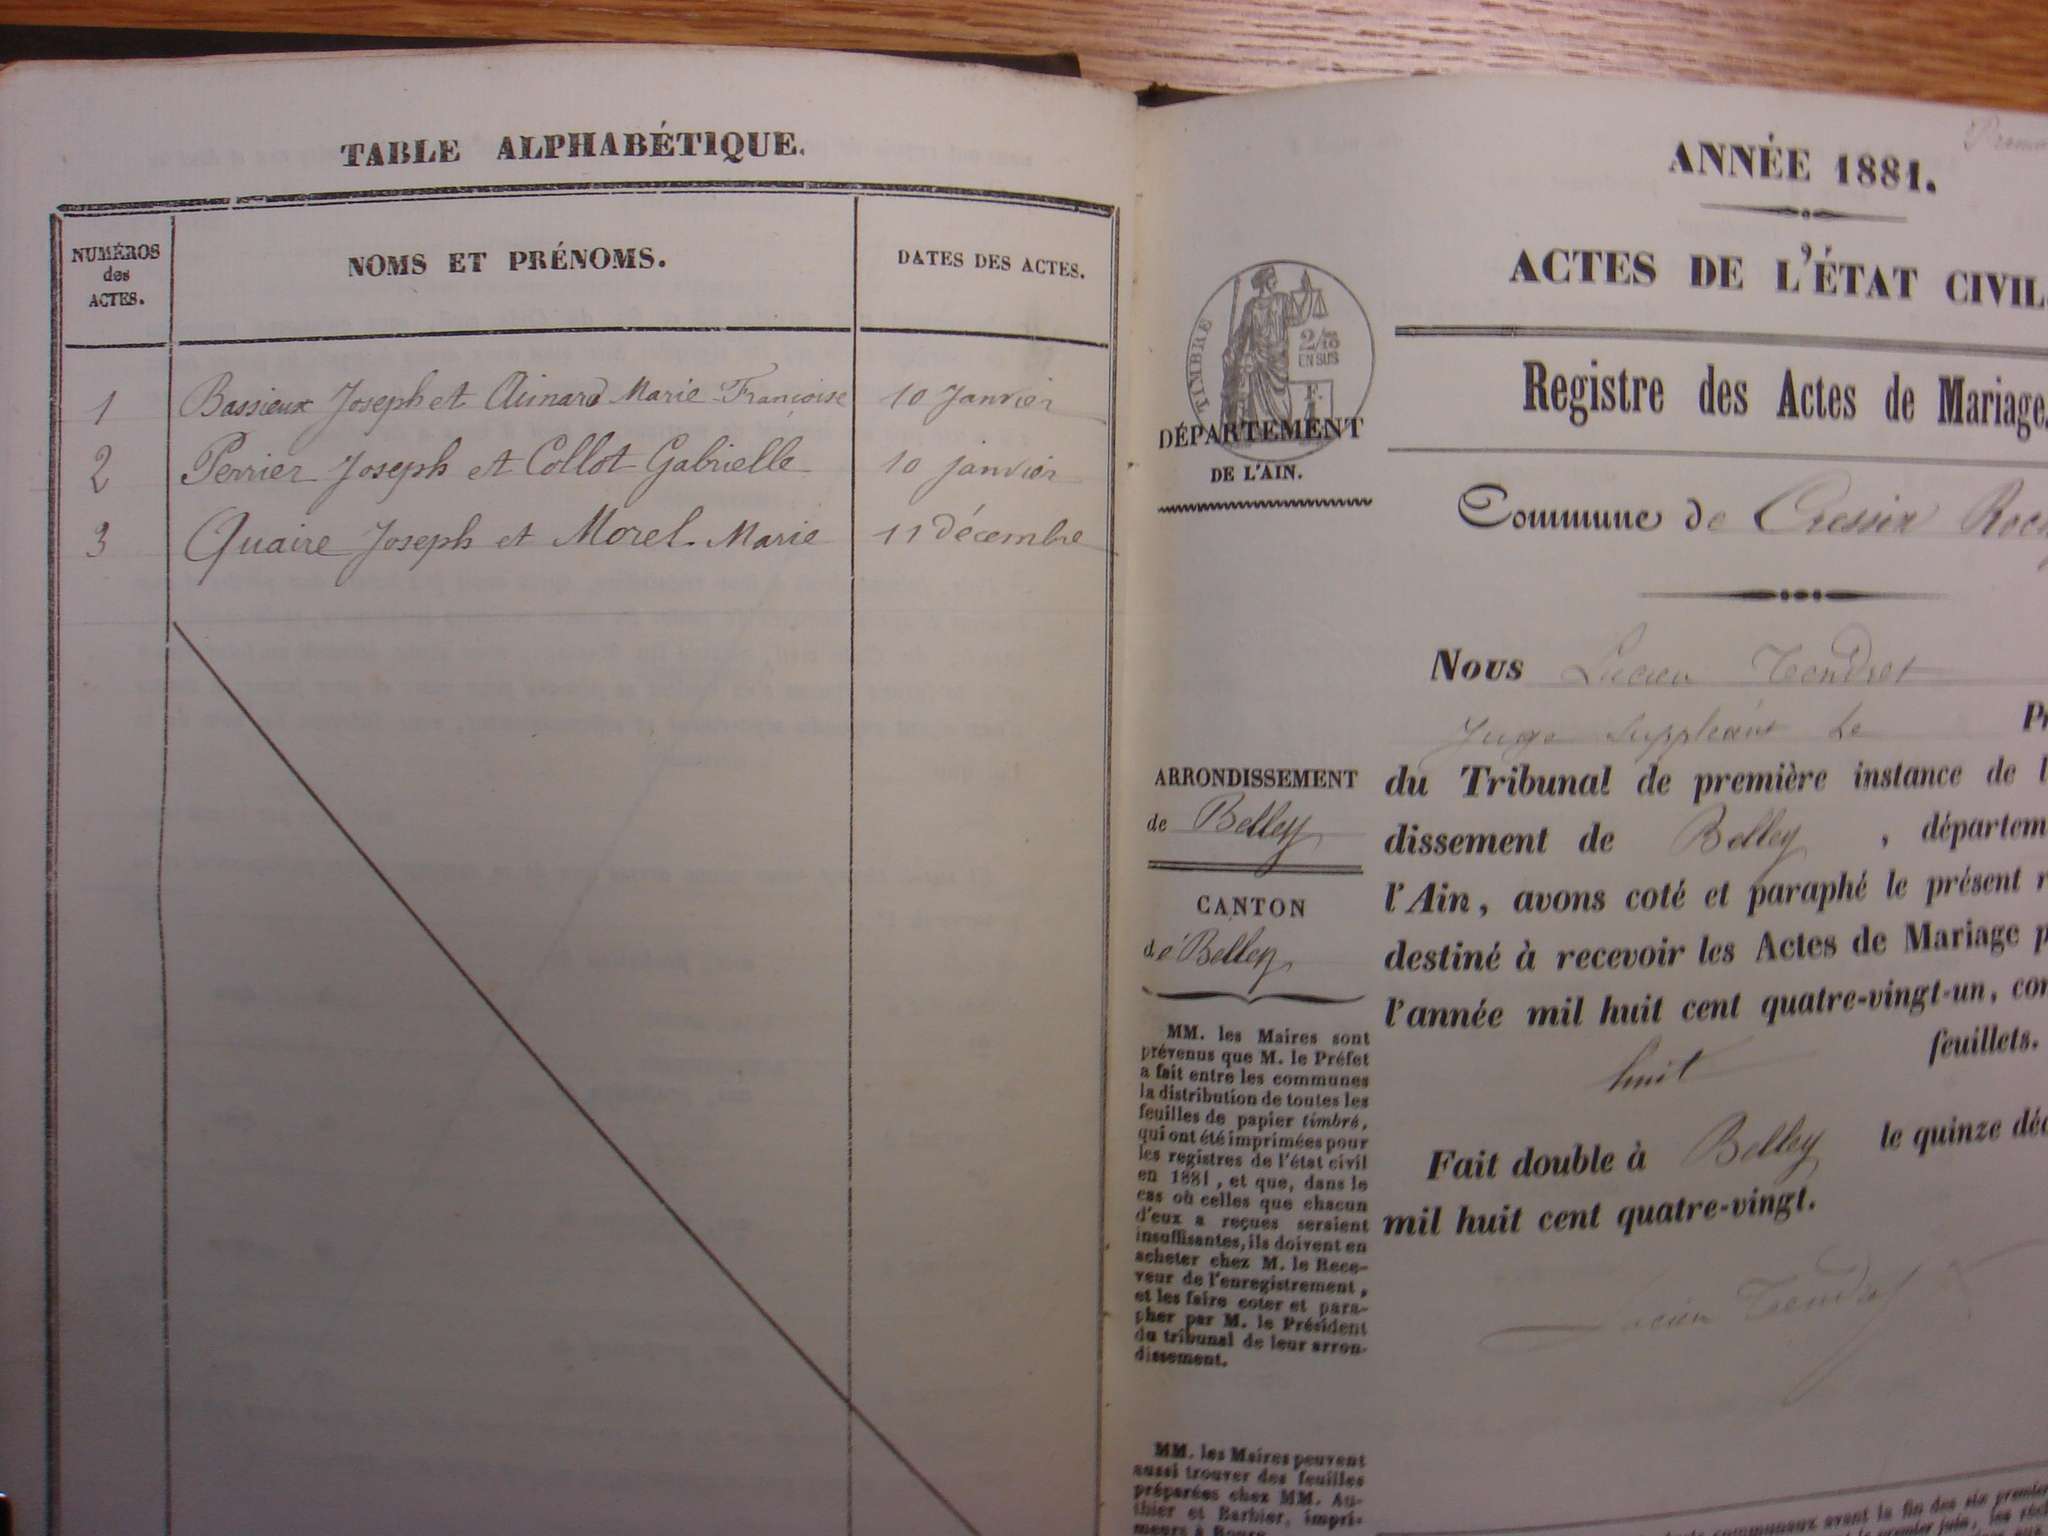 TABLE ALPHABÉTIQUE.
NUMÉROS des ACTES. NOMS ET PRÉNOMS. DATES DES ACTES.
1 Bassieux Joseph et Aimard Marie Françoise 10 Janvier
2 Perrier Joseph et Collot Gabrielle 10 janvier
3 Quaire Joseph et Morel Marie 11 décembre
ANNÉE 1881.
ACTES DE L'ÉTAT CIVIL
TIMBRE
2/10
EN SUS
DÉPARTEMENT
DE L'AIN.
Registre des Actes de Mariage
Commune de Cressin
Nous Lucien Tendret
Juge Suppléant
ARRONDISSEMENT
de Belley
CANTON
de Belley
du Tribunal de première instance de
dissement de Belley, départem
l'Ain, avons coté et paraphé le présent
destiné à recevoir les Actes de Mariage
l'année mil huit cent quatre-vingt-un,
huit feuillets.
Fait double à Belley le quinze
mil huit cent quatre-vingt.
Lucien Tendret
MM. les Maires sont
prévenus que M. le Préfet
a fait entre les communes
la distribution de toutes les
feuilles de papier timbré,
qui ont été imprimées pour
les registres de l'état civil
en 1881, et que, dans le
cas où celles que chacun
d'eux a reçues seraient
insuffisantes, ils doivent en
acheter chez M. le Rece-
veur de l'enregistrement,
et les faire coter et para-
pher par M. le Président
du tribunal de leur arron-
dissement.
MM. les Maires peuvent
aussi trouver des feuilles
préparées chez MM. Au-
thier et Barbier, impri-
meurs à Bourg
communaux avant la fin des six premier